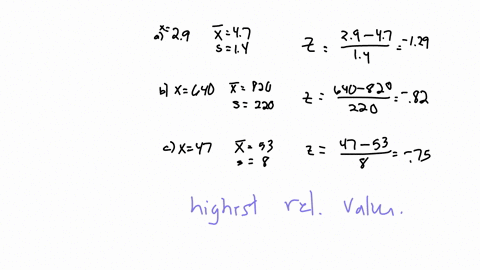 a) x=2.9 x̄=4.7 s=1.4 z = (2.9-4.7)/1.4 = -1.29
b) x=640 x̄=820 s=220 z = (640-820)/220 = -.82
c) x=47 x̄=53 s=8 z = (47-53)/8 = -.75
highest rel. value.